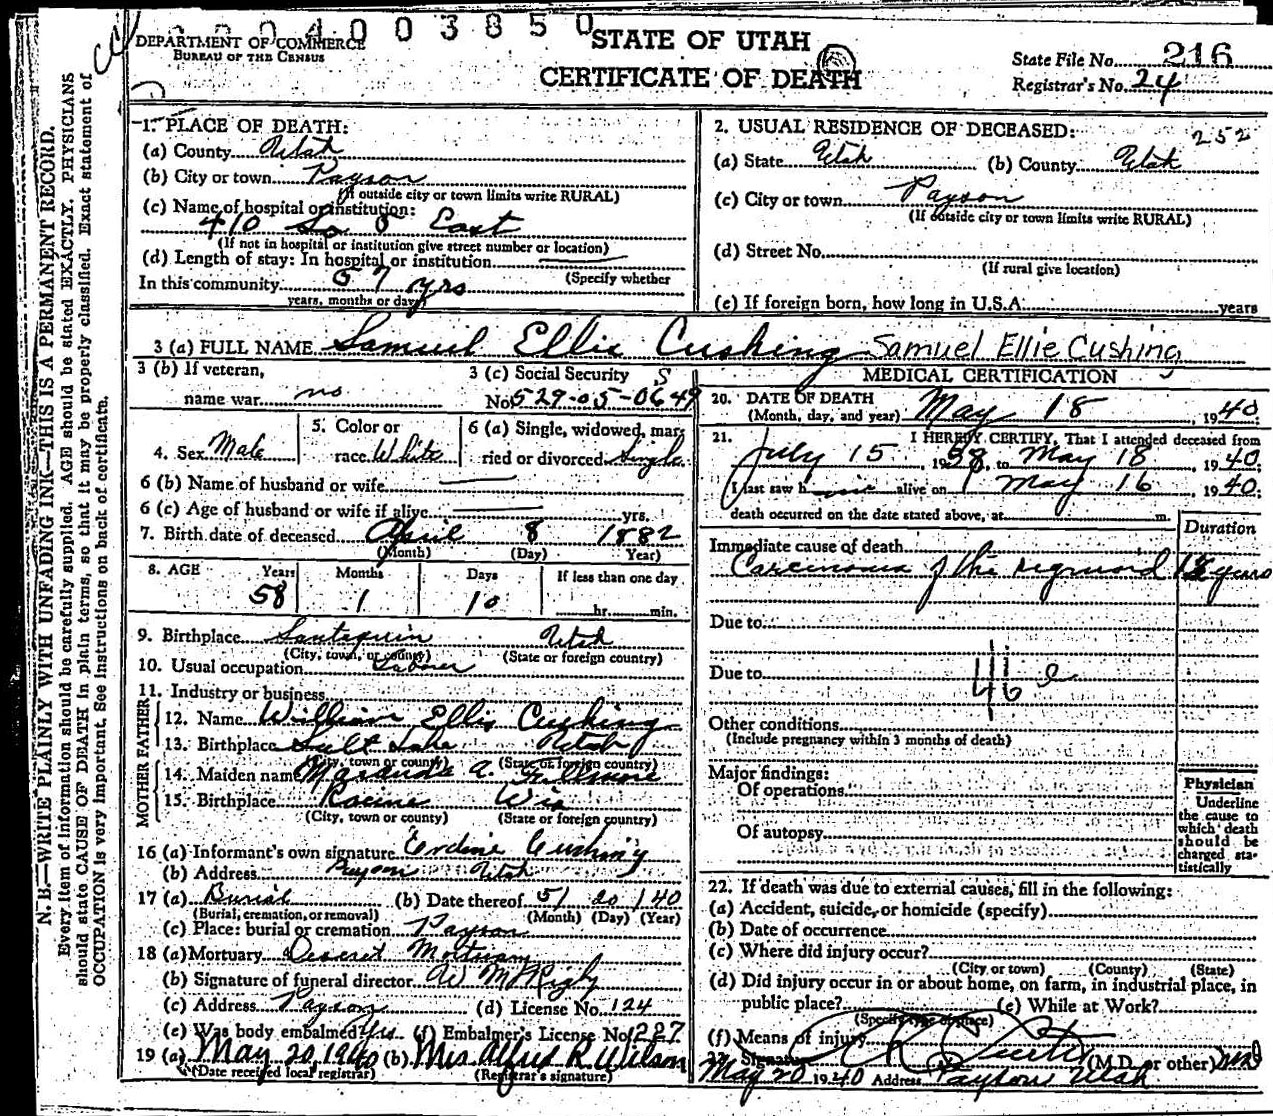 0004003850
DEPARTMENT OF COMMERCE
BUREAU OF THE CENSUS
STATE OF UTAH
CERTIFICATE OF DEATH
State File No. 216
Registrar's No. 24
1. PLACE OF DEATH:
(a) County Utah
(b) City or town Payson
(If outside city or town limits write RURAL)
(c) Name of hospital or institution:
410 So 5 East
(If not in hospital or institution give street number or location)
(d) Length of stay: In hospital or institution
(Specify whether
In this community 57 yrs
years, months or days)
2. USUAL RESIDENCE OF DECEASED: 252
(a) State Utah (b) County Utah
(c) City or town Payson
(If outside city or town limits write RURAL)
(d) Street No.
(If rural give location)
(e) If foreign born, how long in U.S.A. years
3 (a) FULL NAME Samuel Ellie Cushing Samuel Ellie Cushing
3 (b) If veteran,
name war no
3 (c) Social Security
No. 529-05-0649
4. Sex Male
5. Color or
race White
6 (a) Single, widowed, mar-
ried or divorced Single
6 (b) Name of husband or wife
6 (c) Age of husband or wife if alive yrs.
7. Birth date of deceased April 8 1882
(Month) (Day) Year)
8. AGE Years Months Days If less than one day
58 1 10 hr. min.
9. Birthplace Santaquin Utah
(City, town, or county) (State or foreign country)
10. Usual occupation Laborer
11. Industry or business
FATHER
12. Name William Ellis Cushing
13. Birthplace Salt Lake Utah
(City, town or county) (State or foreign country)
MOTHER
14. Maiden name Maranda A. Fillmore
15. Birthplace Racine Wis
(City, town or county) (State or foreign country)
16 (a) Informant's own signature Erdine Cushing
(b) Address Payson Utah
17 (a) Burial (b) Date thereof 5/ 20 /40
(Burial, cremation, or removal) (Month) (Day) (Year)
(c) Place: burial or cremation Payson
18 (a) Mortuary Deseret Mortuary
(b) Signature of funeral director W M Rigby
(c) Address Payson (d) License No. 124
(e) Was body embalmed? Yes (f) Embalmer's License No. 227
19 (a) May 20, 1940 (b) Mrs Alfred R. Wilson
(Date received local registrar) (Registrar's signature)
MEDICAL CERTIFICATION
20. DATE OF DEATH
(Month, day, and year) May 18, 1940
21. I HEREBY CERTIFY, That I attended deceased from
July 15, 1938, to May 18, 1940.
I last saw him alive on May 16, 1940.
death occurred on the date stated above, at m.
Duration
Immediate cause of death
Carcinoma of the sigmoid years
Due to
Due to 46 e
Other conditions
(Include pregnancy within 3 months of death)
Major findings:
Of operations
Of autopsy
Physician
Underline
the cause to
which death
should be
charged sta-
tistically
22. If death was due to external causes, fill in the following:
(a) Accident, suicide, or homicide (specify)
(b) Date of occurrence
(c) Where did injury occur?
(City or town) (County) (State)
(d) Did injury occur in or about home, on farm, in industrial place, in
public place? (e) While at Work?
(Specify type of place)
(f) Means of injury
23. Signature (M.D. or other) MD
May 20 1940 Address Payson Utah
N. B.—WRITE PLAINLY WITH UNFADING INK—THIS IS A PERMANENT RECORD.
Every item of information should be carefully supplied. AGE should be stated EXACTLY. PHYSICIANS
should state CAUSE OF DEATH in plain terms, so that it may be properly classified. Exact statement of
OCCUPATION is very important. See instructions on back of certificate.